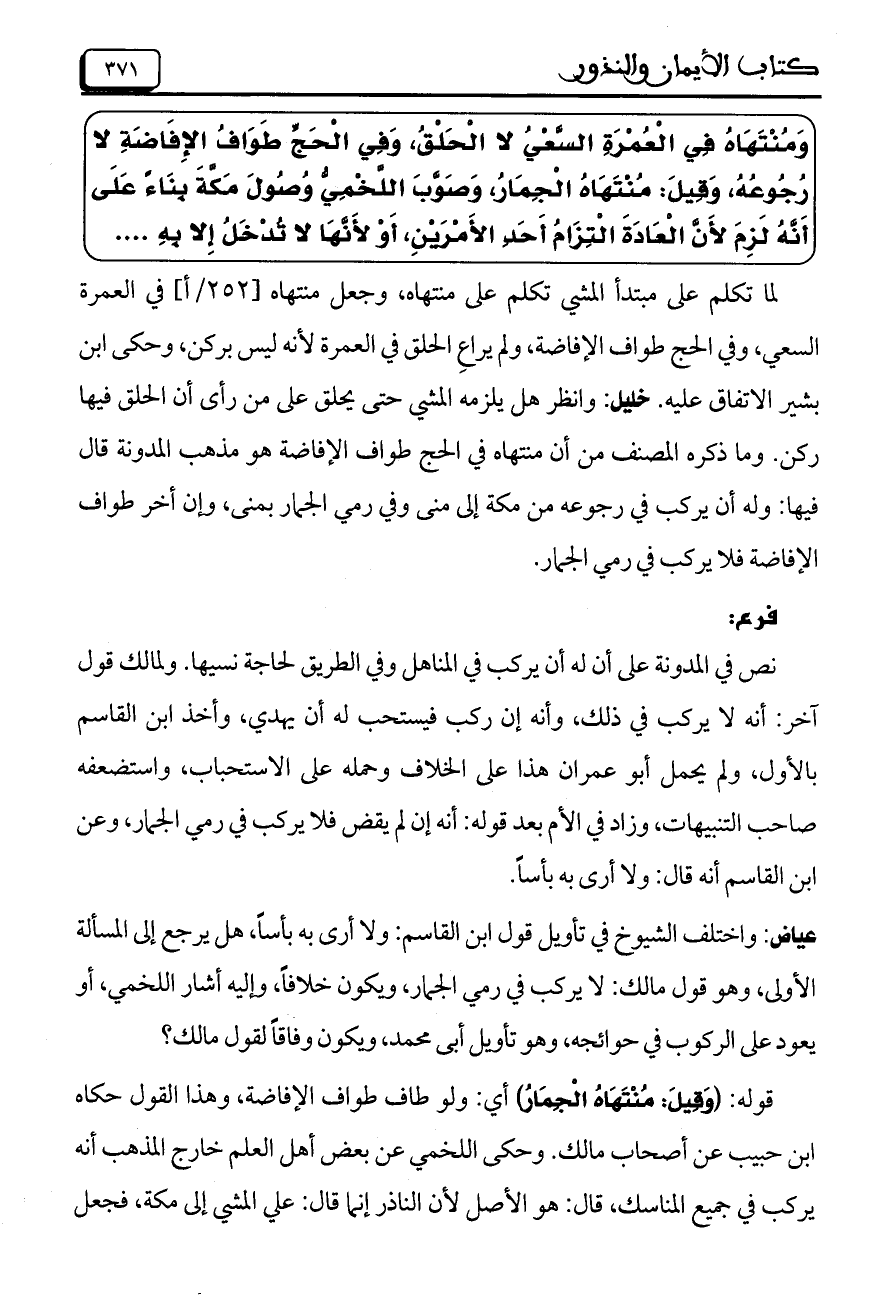 كتاب الأيمان والنذور
٣٧١
وَمُنْتَهَاهُ فِي الْعُمْرَةِ السَّعْيُ لا الْحَلْقُ، وَفِي الْحَجِّ طَوَافُ الإِفَاضَةِ لا
رُجُوعُهُ، وَقِيلَ: مُنْتَهَاهُ الْجِمَارُ، وَصَوَّبَ اللَّخْمِيُّ وُصُولَ مَكَّةَ بِنَاءً عَلَى
أَنَّهُ لَزِمَ لأَنَّ الْعَادَةَ الْتِزَامُ أَحَدِ الأَمْرَيْنِ، أَوْ لأَنَّهَا لا تُدْخَلُ إِلا بِهِ ....
لما تكلم على مبتدأ المشي تكلم على منتهاه، وجعل منتهاه [٢٥٢/أ] في العمرة
السعي، وفي الحج طواف الإفاضة، ولم يراعِ الحلق في العمرة لأنه ليس بركن، وحكى ابن
بشير الاتفاق عليه. خليل: وانظر هل يلزمه المشي حتى يحلق على من رأى أن الحلق فيها
ركن. وما ذكره المصنف من أن منتهاه في الحج طواف الإفاضة هو مذهب المدونة قال
فيها: وله أن يركب في رجوعه من مكة إلى منى وفي رمي الجمار بمنى، وإن أخر طواف
الإفاضة فلا يركب في رمي الجمار.
فرع:
نص في المدونة على أن له أن يركب في المناهل وفي الطريق لحاجة نسيها. ولمالك قول
آخر: أنه لا يركب في ذلك، وأنه إن ركب فيستحب له أن يهدي، وأخذ ابن القاسم
بالأول، ولم يحمل أبو عمران هذا على الخلاف وحمله على الاستحباب، واستضعفه
صاحب التنبيهات، وزاد في الأم بعد قوله: أنه إن لم يقض فلا يركب في رمي الجمار، وعن
ابن القاسم أنه قال: ولا أرى به بأساً.
عياض: واختلف الشيوخ في تأويل قول ابن القاسم: ولا أرى به بأساً، هل يرجع إلى المسألة
الأولى، وهو قول مالك: لا يركب في رمي الجمار، ويكون خلافاً، وإليه أشار اللخمي، أو
يعود على الركوب في حوائجه، وهو تأويل أبى محمد، ويكون وفاقاً لقول مالك؟
قوله: (وَقِيلَ: مُنْتَهَاهُ الْجِمَارُ) أي: ولو طاف طواف الإفاضة، وهذا القول حكاه
ابن حبيب عن أصحاب مالك. وحكى اللخمي عن بعض أهل العلم خارج المذهب أنه
يركب في جميع المناسك، قال: هو الأصل لأن الناذر إنما قال: علي المشي إلى مكة، فجعل